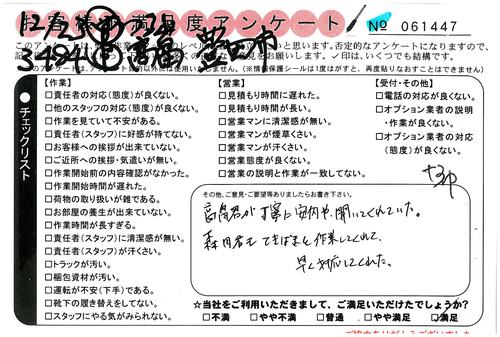 お客様満足度アンケート
No 061447
12/23
5494
豊田市
【作業】
□責任者の対応(態度)が良くない。
□他のスタッフの対応(態度)が良くない。
□作業を見ていて不安がある。
□責任者(スタッフ)に好感が持てない。
□お客様への挨拶が出来ていない。
□ご近所への挨拶・気遣いが無い。
□作業開始前の内容確認がなかった。
□作業開始時間が遅れた。
□荷物の取り扱いが雑である。
□お部屋の養生が出来ていない。
□作業時間が長すぎる。
□責任者(スタッフ)に清潔感が無い。
□責任者(スタッフ)が汗くさい。
□トラックが汚い。
□梱包資材が汚い。
□運転が不安(下手)である。
□靴下の履き替えをしてない。
□スタッフにやる気がみられない。
【営業】
□見積もり時間に遅れた。
□見積もり時間が長い。
□営業マンに清潔感が無い。
□営業マンが煙草くさい。
□営業マンが汗くさい。
□営業態度が良くない。
□営業の説明と作業が一致してない。
【受付・その他】
□電話の対応が良くない。
□オプション業者の説明
・作業が良くない。
□オプション業者の対応
(態度)が良くない。
●チェックリスト
その他、ご意見・ご要望等ありましたらお書き下さい。
丁寧に案内や、聞いてくれていた。
てきぱきと作業してくれて、
早く対応してくれた。
☆当社をご利用いただきまして、ご満足いただけたでしょうか?
□不満 □やや不満 □普通 □やや満足 □満足